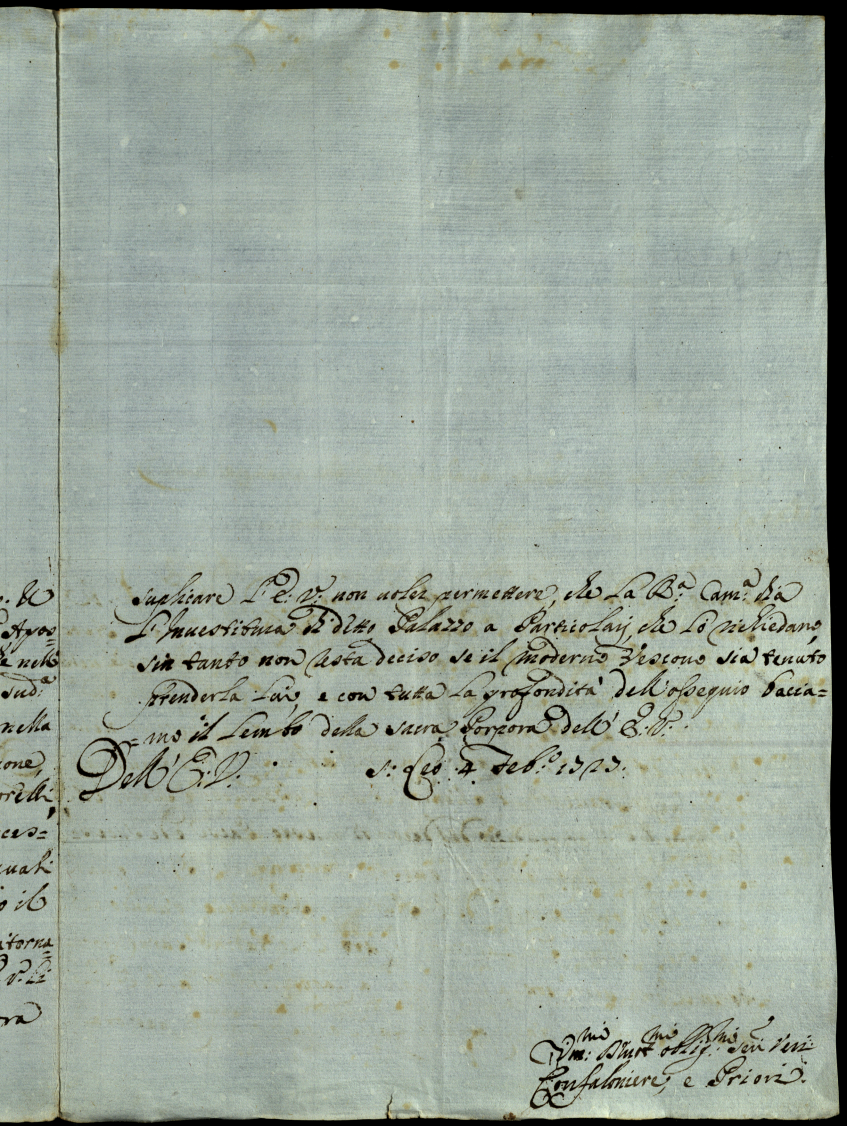 o. &
Apos=
e nell
sud.a
nella
ione,
orelli
ces=
quali
o il
itorna=
tra
suplicare l'E: V: non voler permettere, che la R.a Cam.a dia
l'Investitura di detto Palazzo a Particolari, che lo richiedano,
sin tanto non resta deciso se il moderno Vescovo sia tenuto
prenderla lui, e con tutta la profondità dell'ossequio bacia=
=mo il lembo della sacra Porpora dell'E: V:
Dell'E: V: S: Leo 4 Feb.o 1723:
Vm:mi Dmi oblig:mi Seri
Confaloniere, e Priori.